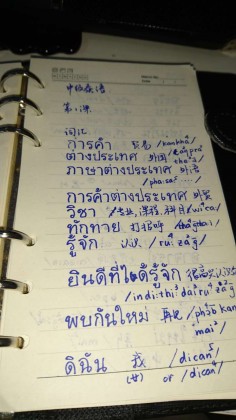 中级泰语
第一课
词汇
การค้า 贸易 /kankha/
ต่างประเทศ 外国
ภาษาต่างประเทศ 外语
/pha:sa:
การค้าต่างประเทศ 外贸
วิชา 专业,课程,科目 /wi ca/
ทักทาย 打招呼
รู้จัก 认识
ยินดีที่ได้รู้จัก 很高兴认识
พบกันใหม่ 再见
ดิฉัน 我 /dican/
(女) or /dican/